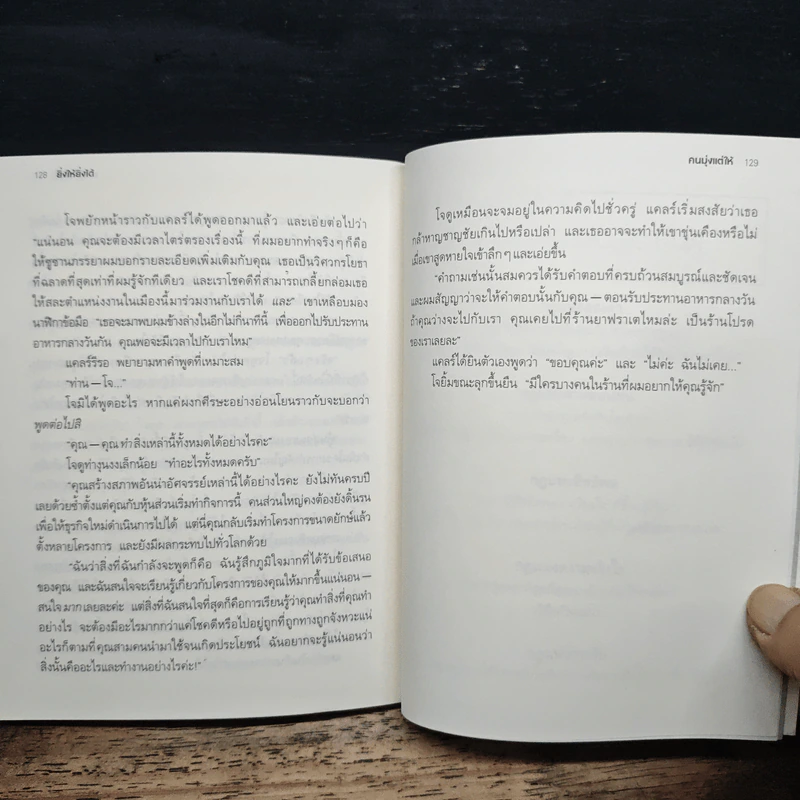 128 ยิ่งให้ยิ่งได้
โจพยักหน้าราวกับแคลร์ได้พูดออกมาแล้ว และเอ่ยต่อไปว่า
"แน่นอน คุณจะต้องมีเวลาไตร่ตรองเรื่องนี้ ที่ผมอยากทำจริงๆ ก็คือ
ให้ซูซานภรรยาผมบอกรายละเอียดเพิ่มเติมกับคุณ เธอเป็นวิศวกรโยธา
ที่ฉลาดที่สุดเท่าที่ผมรู้จักทีเดียว และเราโชคดีที่สามารถเกลี้ยกล่อมเธอ
ให้สละตำแหน่งงานในเมืองนี้มาร่วมงานกับเราได้ และ" เขาเหลือบมอง
นาฬิกาข้อมือ "เธอจะมาพบผมข้างล่างในอีกไม่กี่นาทีนี้ เพื่อออกไปรับประทาน
อาหารกลางวันกัน คุณพอจะมีเวลาไปกับเราไหม"
แคลร์รีรอ พยายามหาคำพูดที่เหมาะสม
"ท่าน — โจ..."
โจมิได้พูดอะไร หากแค่ผงกศีรษะอย่างอ่อนโยนราวกับจะบอกว่า
พูดต่อไปสิ
"คุณ — คุณ ทำ สิ่งเหล่านี้ทั้งหมดได้อย่างไรคะ"
โจดูท่างุนงงเล็กน้อย "ทำอะไรทั้งหมดครับ"
"คุณสร้างสภาพอันน่าอัศจรรย์เหล่านี้ได้อย่างไรคะ ยังไม่ทันครบปี
เลยด้วยซ้ำตั้งแต่คุณกับหุ้นส่วนเริ่มทำกิจการนี้ คนส่วนใหญ่คงต้องยังดิ้นรน
เพื่อให้ธุรกิจใหม่ดำเนินการไปได้ แต่นี่คุณกลับเริ่มทำโครงการขนาดยักษ์แล้ว
ตั้งหลายโครงการ และยังมีผลกระทบไปทั่วโลกด้วย
"ฉันว่าสิ่งที่ฉันกำลังจะพูดก็คือ ฉันรู้สึกภูมิใจมากที่ได้รับข้อเสนอ
ของคุณ และฉันสนใจจะเรียนรู้เกี่ยวกับโครงการของคุณให้มากขึ้นแน่นอน —
สนใจ มาก เลยละค่ะ แต่สิ่งที่ฉันสนใจที่สุดก็คือการเรียนรู้ว่าคุณทำสิ่งที่คุณทำ
อย่างไร จะต้องมีอะไรมากกว่าแค่โชคดีหรือไปอยู่ถูกที่ถูกทางถูกจังหวะแน่
อะไรก็ตามที่คุณสามคนนำมาใช้จนเกิดประโยชน์ ฉันอยากจะรู้แน่นอนว่า
สิ่งนั้นคืออะไรและทำงานอย่างไรค่ะ!"
คนมุ่งแต่ให้ 129
โจดูเหมือนจะจมอยู่ในความคิดไปชั่วครู่ แคลร์เริ่มสงสัยว่าเธอ
กล้าหาญชาญชัยเกินไปหรือเปล่า และเธออาจจะทำให้เขาขุ่นเคืองหรือไม่
เมื่อเขาสูดหายใจเข้าลึกๆ และเอ่ยขึ้น
"คำถามเช่นนั้นสมควรได้รับคำตอบที่ครบถ้วนสมบูรณ์และชัดเจน
และผมสัญญาว่าจะให้คำตอบนั้นกับคุณ — ตอนรับประทานอาหารกลางวัน
ถ้าคุณว่างจะไปกับเรา คุณเคยไปที่ร้านยาฟราเตไหมล่ะ เป็นร้านโปรด
ของเราเลยละ"
แคลร์ได้ยินตัวเองพูดว่า "ขอบคุณค่ะ" และ "ไม่ค่ะ ฉันไม่เคย..."
โจยิ้มขณะลุกขึ้นยืน "มีใครบางคนในร้านที่ผมอยากให้คุณรู้จัก"